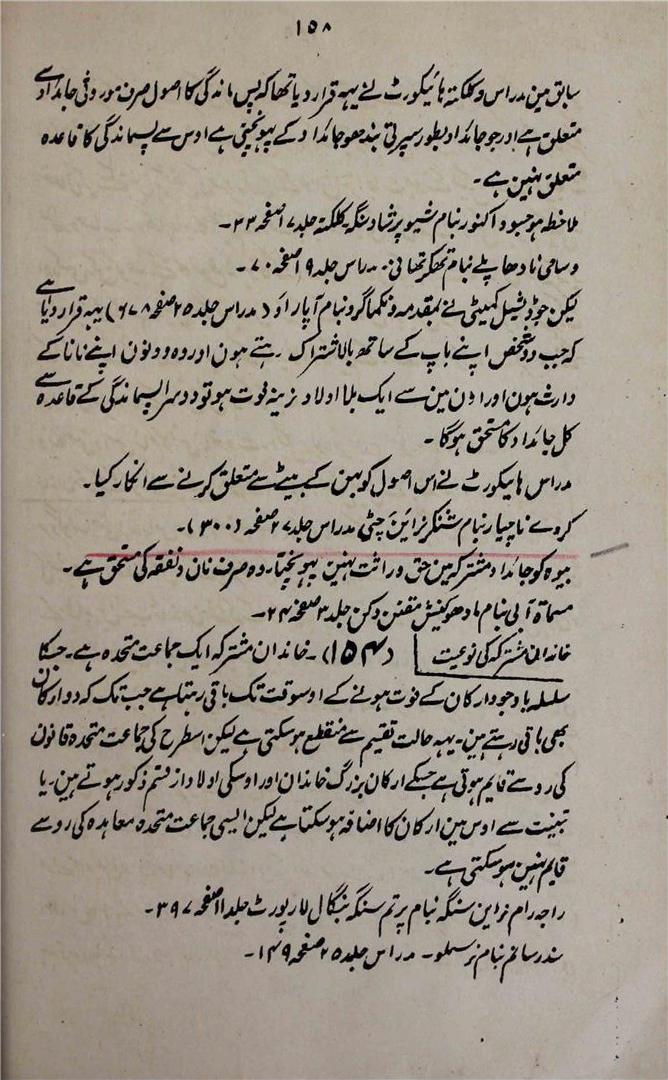 ۱۵۸
سابق مین مدراس و کلکتہ ہائیکورٹ نے یہہ قرار دیا تھا کہ پس ماندگی کا اصول صرف موروثی جائداد سے
متعلق ہے اور جو جائداد بطور سپرتی بندھو جائداد کے پہونچتی ہے اوس سے پسماندگی کا قاعدہ
متعلق نہین ہے۔
ملاحظہ ہو جسودا کنور بنام شیو پرشاد سنگہ۔ کلکتہ جلد ۱۷ صفحہ ۳۳۔
و سامی نادھا پلے بنام تھنگاتھانی۔ مدراس جلد ۱۹ صفحہ ۷۰۔
لیکن جوڈیشیل کمیٹی نے بمقدمہ ونکیاگرو بنام آپاراو (مدراس جلد ۲۵ صفحہ ۶۷۸) یہہ قرار دیا ہے
کہ جب دو شخص اپنے باپ کے ساتھ بالاشتراک رہتے ہون اور وہ دونون اپنے نانا کے
وارث ہون اور اون مین سے ایک بلا اولاد نرینہ فوت ہو تو دوسرا پسماندگی کے قاعدہ سے
کل جائداد کا مستحق ہوگا۔
مدراس ہائیکورٹ نے اس اصول کو بہن کے بیٹے سے متعلق کرنے سے انکار کیا۔
کروپے ناچیار بنام شنکر نراین چٹی مدراس جلد ۲۷ صفحہ (۳۰۰)۔
بیوہ کو جائداد مشترکہ مین حق وراثت نہین پہونچتا۔ وہ صرف نان و نفقہ کی مستحق ہے۔
مسماۃ آبی بنام مادھو کنیش مقنن دکن جلد ۳ صفحہ ۲۴۔
خاندان مشترکہ کی نوعیت (۱۵۴)۔ خاندان مشترکہ ایک جماعت متحدہ ہے۔ جسکا
سلسلہ باوجود ارکان کے فوت ہونے کے اوسوقت تک باقی رہتا ہے جب تک کہ دو ارکان
بھی باقی رہتے ہین۔ یہہ حالت تقسیم سے منقطع ہو سکتی ہے لیکن اسطرح کی جماعت متحدہ قانون
کی رو سے قایم ہوتی ہے جسکے ارکان بزرگ خاندان اور اوسکی اولاد از قسم ذکور ہوتے ہین۔ یا
تبنیت سے اوس مین ارکان کا اضافہ ہو سکتا ہے لیکن ایسی جماعت متحدہ معاہدہ کی رو سے
قایم نہین ہو سکتی ہے۔
راجہ رام نراین سنگہ بنام پرتم سنگہ بنگال لا رپورٹ جلد ۱۱ صفحہ ۳۹۷۔
سندرسانم بنام نرسملو۔ مدراس جلد ۲۵ صفحہ ۱۴۹۔